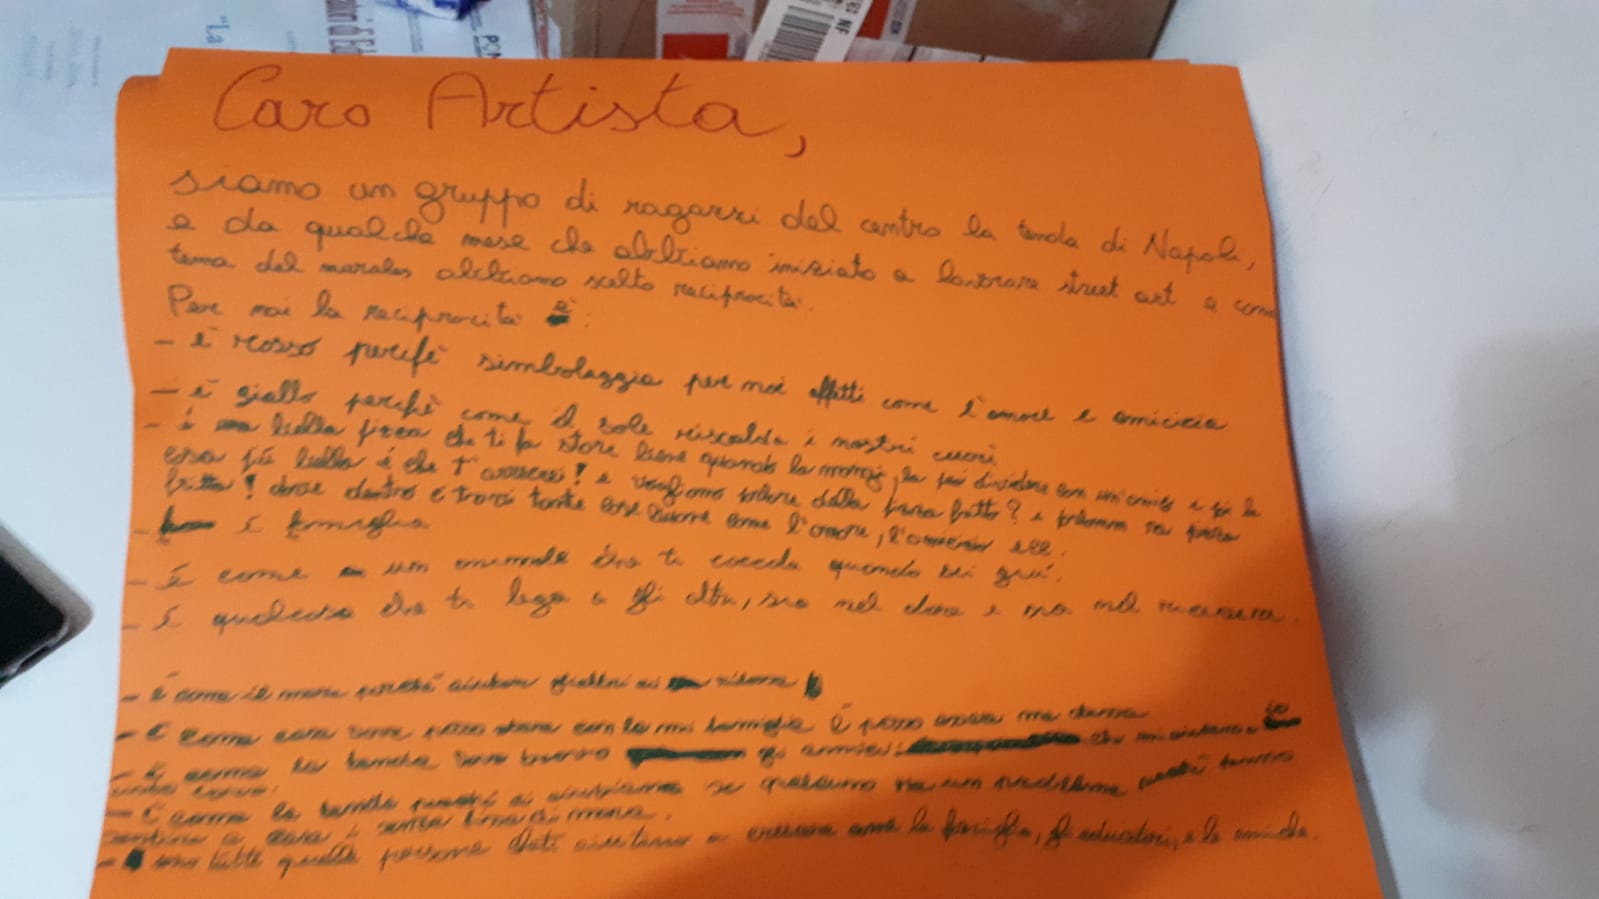 "La
PON
NF
Caro Artista,
siamo un gruppo di ragazzi del centro la tenda di Napoli,
e da qualche mese che abbiamo iniziato a lavorare street art e come
tema del murales abbiamo scelto reciprocità.
Per noi la reciprocità è:
- è rosso perchè simboleggia per noi affetti come l'amore e amicizia
- è giallo perchè come il sole riscalda i nostri cuori
- è una bella pizza che ti fa stare bene quando la mangi, la puoi dividere con un'amico e poi la
cosa più bella è che t'arricrei! e vogliamo parlare della pizza fritta? e
fritta! dove dentro ci trovi tante cose buone come l'amore, l'amicizia ecc.
- è famiglia
- È come un animale che ti coccola quando sei giù.
- È qualcosa che ti lega a gli altri, sia nel dare e sia nel ricevere.
- è come il mare perchè gli altri a ridere
- È come casa dove posso stare con la mi famiglia E posso essere me stessa
- È come la tenda dove trovo gli amici che mi aiutano a
- È come la tenda perchè ci aiutiamo se qualcuno ha un problema perchè fanno
sentire a casa e senza
- tutte quelle persone che ti aiutano a crescere come la famiglia, gli educatori, e le amiche.